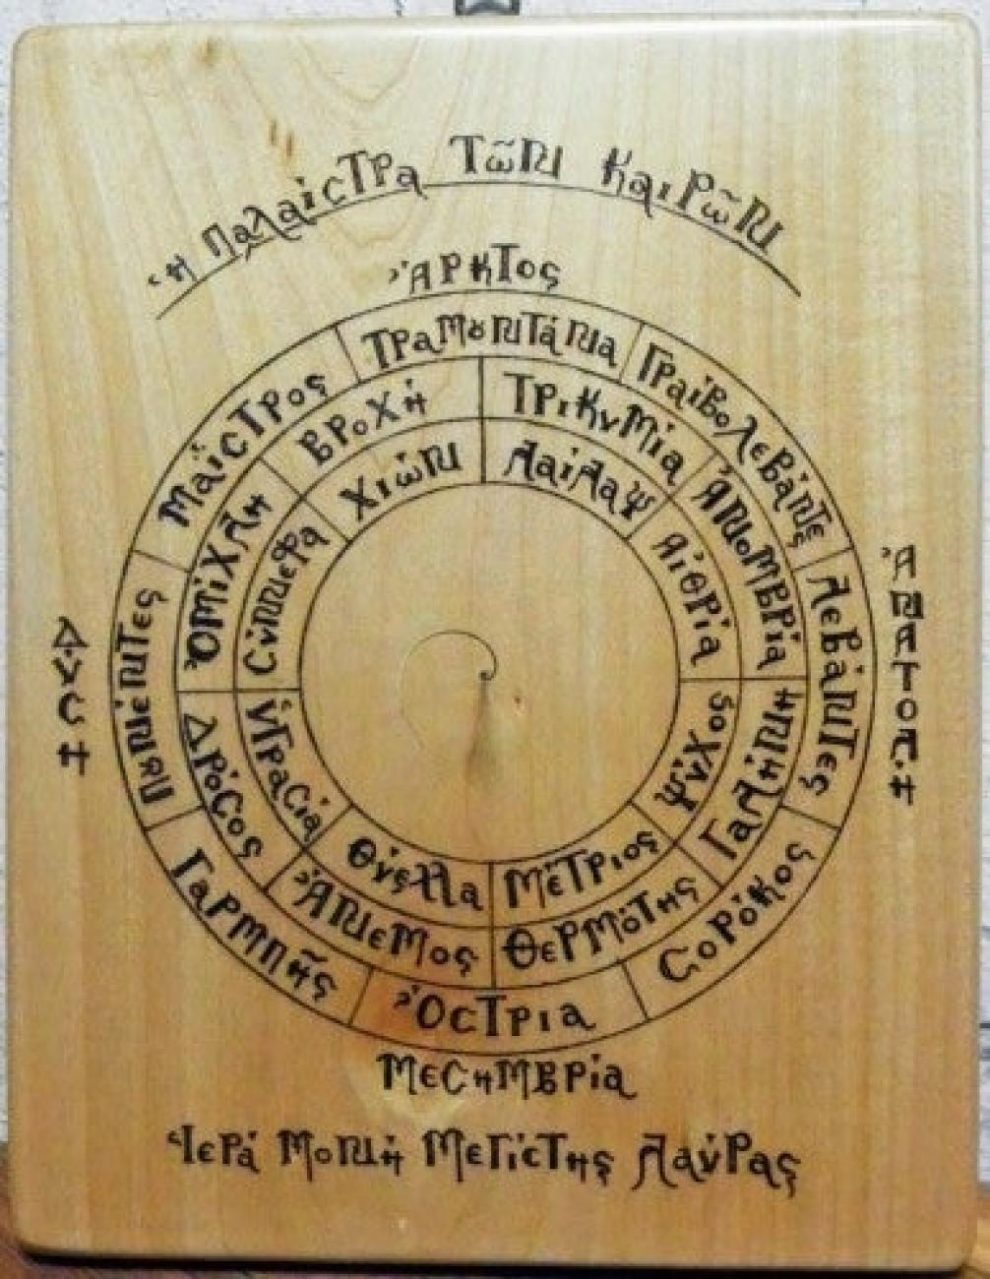 Ἡ Παλαίστρα Τῶν Καιρῶν
Ἄρκτος
Τραμουντάνα
Γραιβολεβάντες
Λεβάντες
Σορόκος
Ὄστρια
Γαρμπῆς
Πουνέντες
Μαΐστρος
Τρικυμία
Ἀνομβρία
Γαλήνη
Θερμότης
Ἄνεμος
Δρόσος
Ὁμίχλη
Βροχή
Λαίλαψ
Αἰθρία
Ψύχος
Μέτριος
Θύελλα
Ὑγρασία
Σύννεφα
Χιών
Ἀνατολή
Δύση
Μεσημβρία
Ἱερά Μονή Μεγίστης Λαύρας